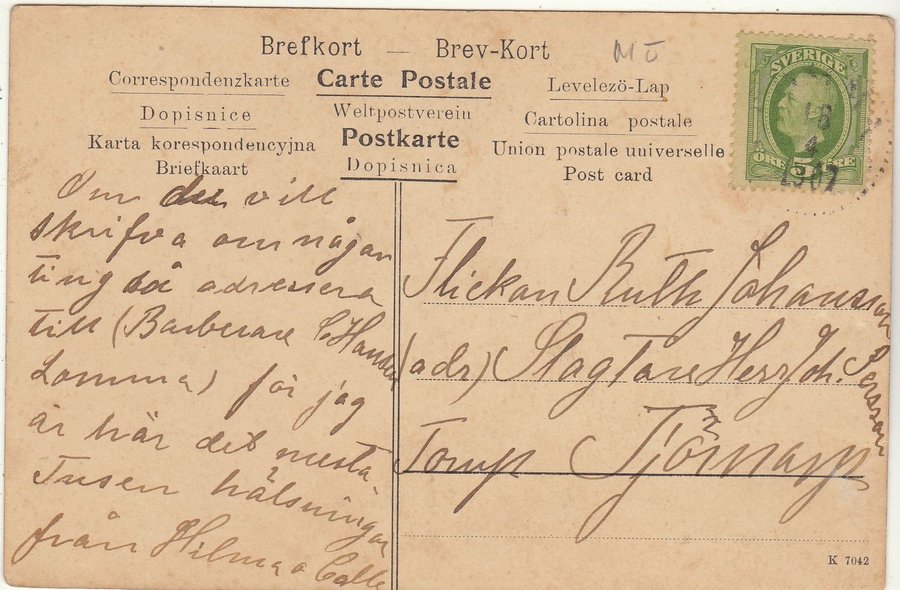 Brefkort — Brev-Kort
MJ
Correspondenzkarte Carte Postale Levelezö-Lap
Dopisnice Weltpostverein Cartolina postale
Karta korespondencyjna Postkarte Union postale universelle
Briefkaart Dopisnica Post card
SVERIGE
ÖRE 5 ÖRE
4
1907
Om du vill
skrifva om någon
ting så adressera
till (Barberare C Hansen
Lomma) för jag
är här det mesta
Tusen hälsningar
från Hilma o Calle
Flickan Ruth Johansson
(adr) Slagtare Herr Joh. Persson
Torup Tjörnarp
K 7042